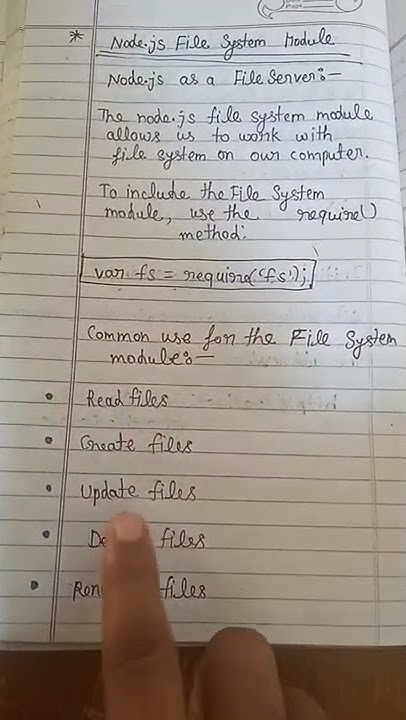 * Node.js File System Module
Node.js as a File Server:-
The node.js file system module
allows us to work with
file system on our computer.
To include the File System
module, use the require()
method:
var fs = require('fs');
Common use for the File System
module:-
• Read files
• Create files
• Update files
• files
• files